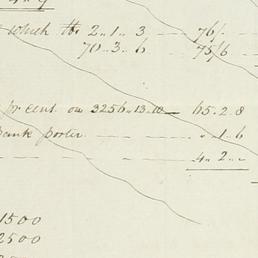 which the 2 .. 1 .. 3 — 76/-
70 .. 3 .. 6 75/6
pr cent on 3256 .. 13 .. 10 — 65 .. 2 .. 8
Bank porter — — — " .. 1 .. 6
— — — — 4 .. 2 .. —
1500
2500